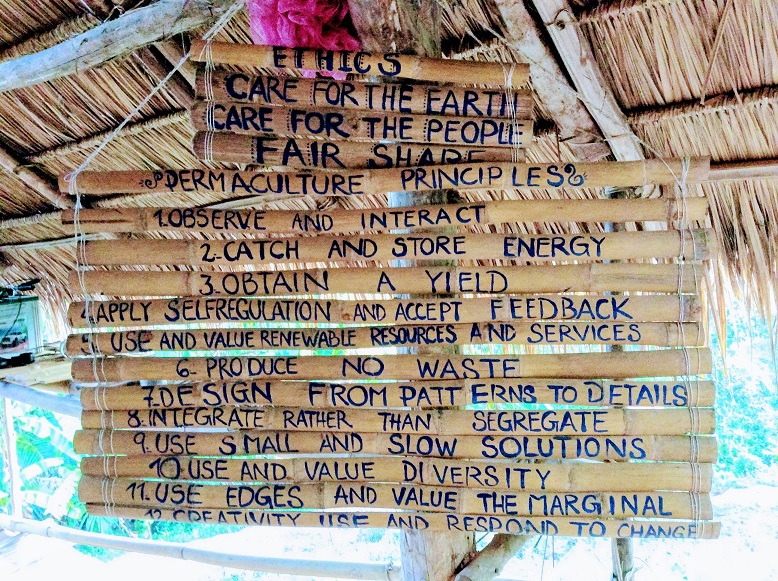 ETHICS
CARE FOR THE EARTH
CARE FOR THE PEOPLE
FAIR SHARE
PERMACULTURE PRINCIPLES
1.OBSERVE AND INTERACT
2-CATCH AND STORE ENERGY
3.OBTAIN A YIELD
4.APPLY SELFREGULATION AND ACCEPT FEEDBACK
5. USE AND VALUE RENEWABLE RESOURCES AND SERVICES
6- PRODUCE NO WASTE
7.DESIGN FROM PATTERNS TO DETAILS
8.INTEGRATE RATHER THAN SEGREGATE
9.USE SMALL AND SLOW SOLUTIONS
10 USE AND VALUE DIVERSITY
11.USE EDGES AND VALUE THE MARGINAL
12 CREATIVITY USE AND RESPOND TO CHANGE